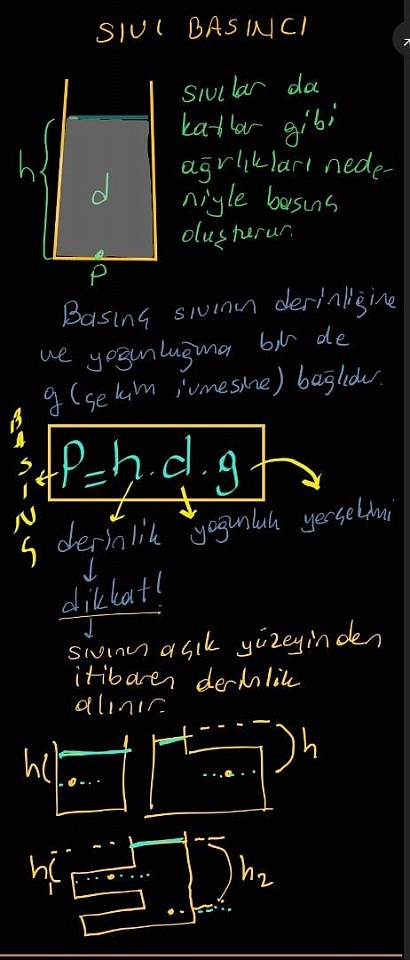 SIVI BASINCI
sıvılar da
katılar gibi
ağırlıkları nede-
niyle basınç
oluşturur.
h
d
P
Basınç sıvının derinliğine
ve yoğunluğuna bir de
g (çekim ivmesine) bağlıdır.
BASINÇ
P=h.d.g
derinlik yoğunluk yerçekimi
dikkat!
sıvının açık yüzeyinden
itibaren derinlik
alınır.
h
h
h1
h2